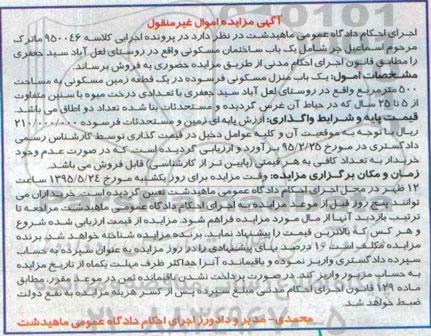 آگهی مزایده اموال غیرمنقول
اجرای احکام دادگاه عمومی ماهیدشت در نظر دارد در پرونده اجرایی کلاسه ۹۵۰۰۴۶ ماترک
مرحوم اسماعیل چر شامل یک باب ساختمان مسکونی واقع در روستای لعل آباد سید جعفری
را مطابق قانون اجرای احکام مدنی از طریق مزایده حضوری به فروش برساند.
مشخصات اموال: یک باب منزل مسکونی فرسوده در یک قطعه زمین مسکونی به مساحت
۵۰۰ مترمربع واقع در روستای لعل آباد سید جعفری با تعدادی درخت میوه با سنین متفاوت
از ۵ تا ۲۵ سال که در حیاط آن غرس گردیده و مستحدثات بنا شده تعداد دو اطاق می باشد.
قیمت پایه و شرایط واگذاری: ارزش پایه ای زمین و مستحدثات فرسوده ۲۱۰/۰۰۰/۰۰۰
ریال با توجه به موقعیت آن و کلیه عوامل دخیل در قیمت گذاری توسط کارشناس رسمی
دادگستری در مورخ ۹۵/۲/۲۵ برآورد و ارزیابی گردیده است که در صورت عدم وجود
خریدار به تعداد کافی به هر قیمتی (پایین تر از کارشناسی) قابل فروش می باشد.
زمان و مکان برگزاری مزایده: وقت مزایده برای روز یکشنبه مورخ ۱۳۹۵/۵/۲۴ ساعت
۱۲ ظهر در محل اجرای احکام دادگاه عمومی ماهیدشت تعیین گردیده است. خریداران می
توانند پنج روز قبل از موعد مزایده به اجرای احکام دادگاه عمومی ماهیدشت مراجعه تا
ترتیب بازدید آنها از مال مورد مزایده فراهم شود. مزایده از قیمت ارزیابی شده شروع
و هر کس که بالاترین قیمت را پیشنهاد نماید، برنده مزایده شناخته خواهد شد. برنده
مزایده مکلف است ۱۰ درصد بهای پیشنهادی را در روز مزایده به عنوان سپرده به حساب
سپرده دادگستری واریز نموده و باقیمانده آنرا حداکثر ظرف مهلت یکماه از تاریخ مزایده
به حساب مزبور واریز کند. در صورت پرداخت نشدن باقیمانده ثمن در موعد مقرر، مطابق
ماده ۱۲۹ قانون اجرای احکام مدنی مبلغ سپرده پس از کسر هزینه مزایده به نفع دولت
ضبط خواهد شد.
محمدی - مدیر و دادورز اجرای احکام دادگاه عمومی ماهیدشت